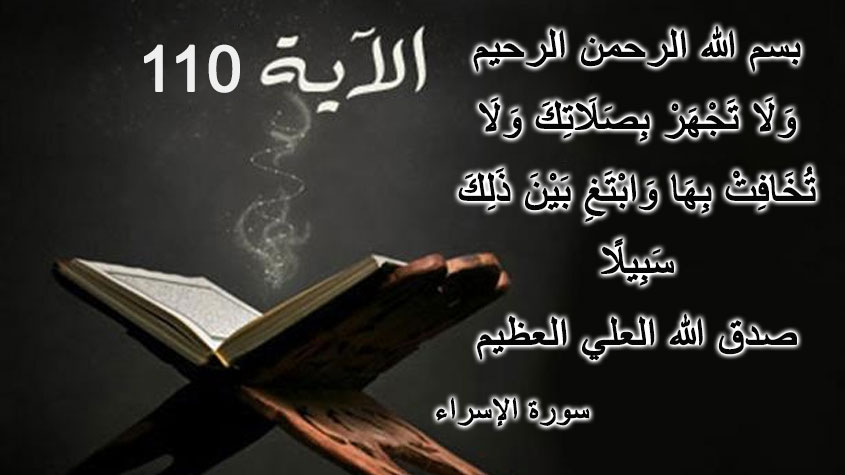 الآية 110
بسم الله الرحمن الرحيم
وَلَا تَجْهَرْ بِصَلَاتِكَ وَلَا
تُخَافِتْ بِهَا وَابْتَغِ بَيْنَ ذَلِكَ
سَبِيلًا
صدق الله العلي العظيم
سورة الإسراء